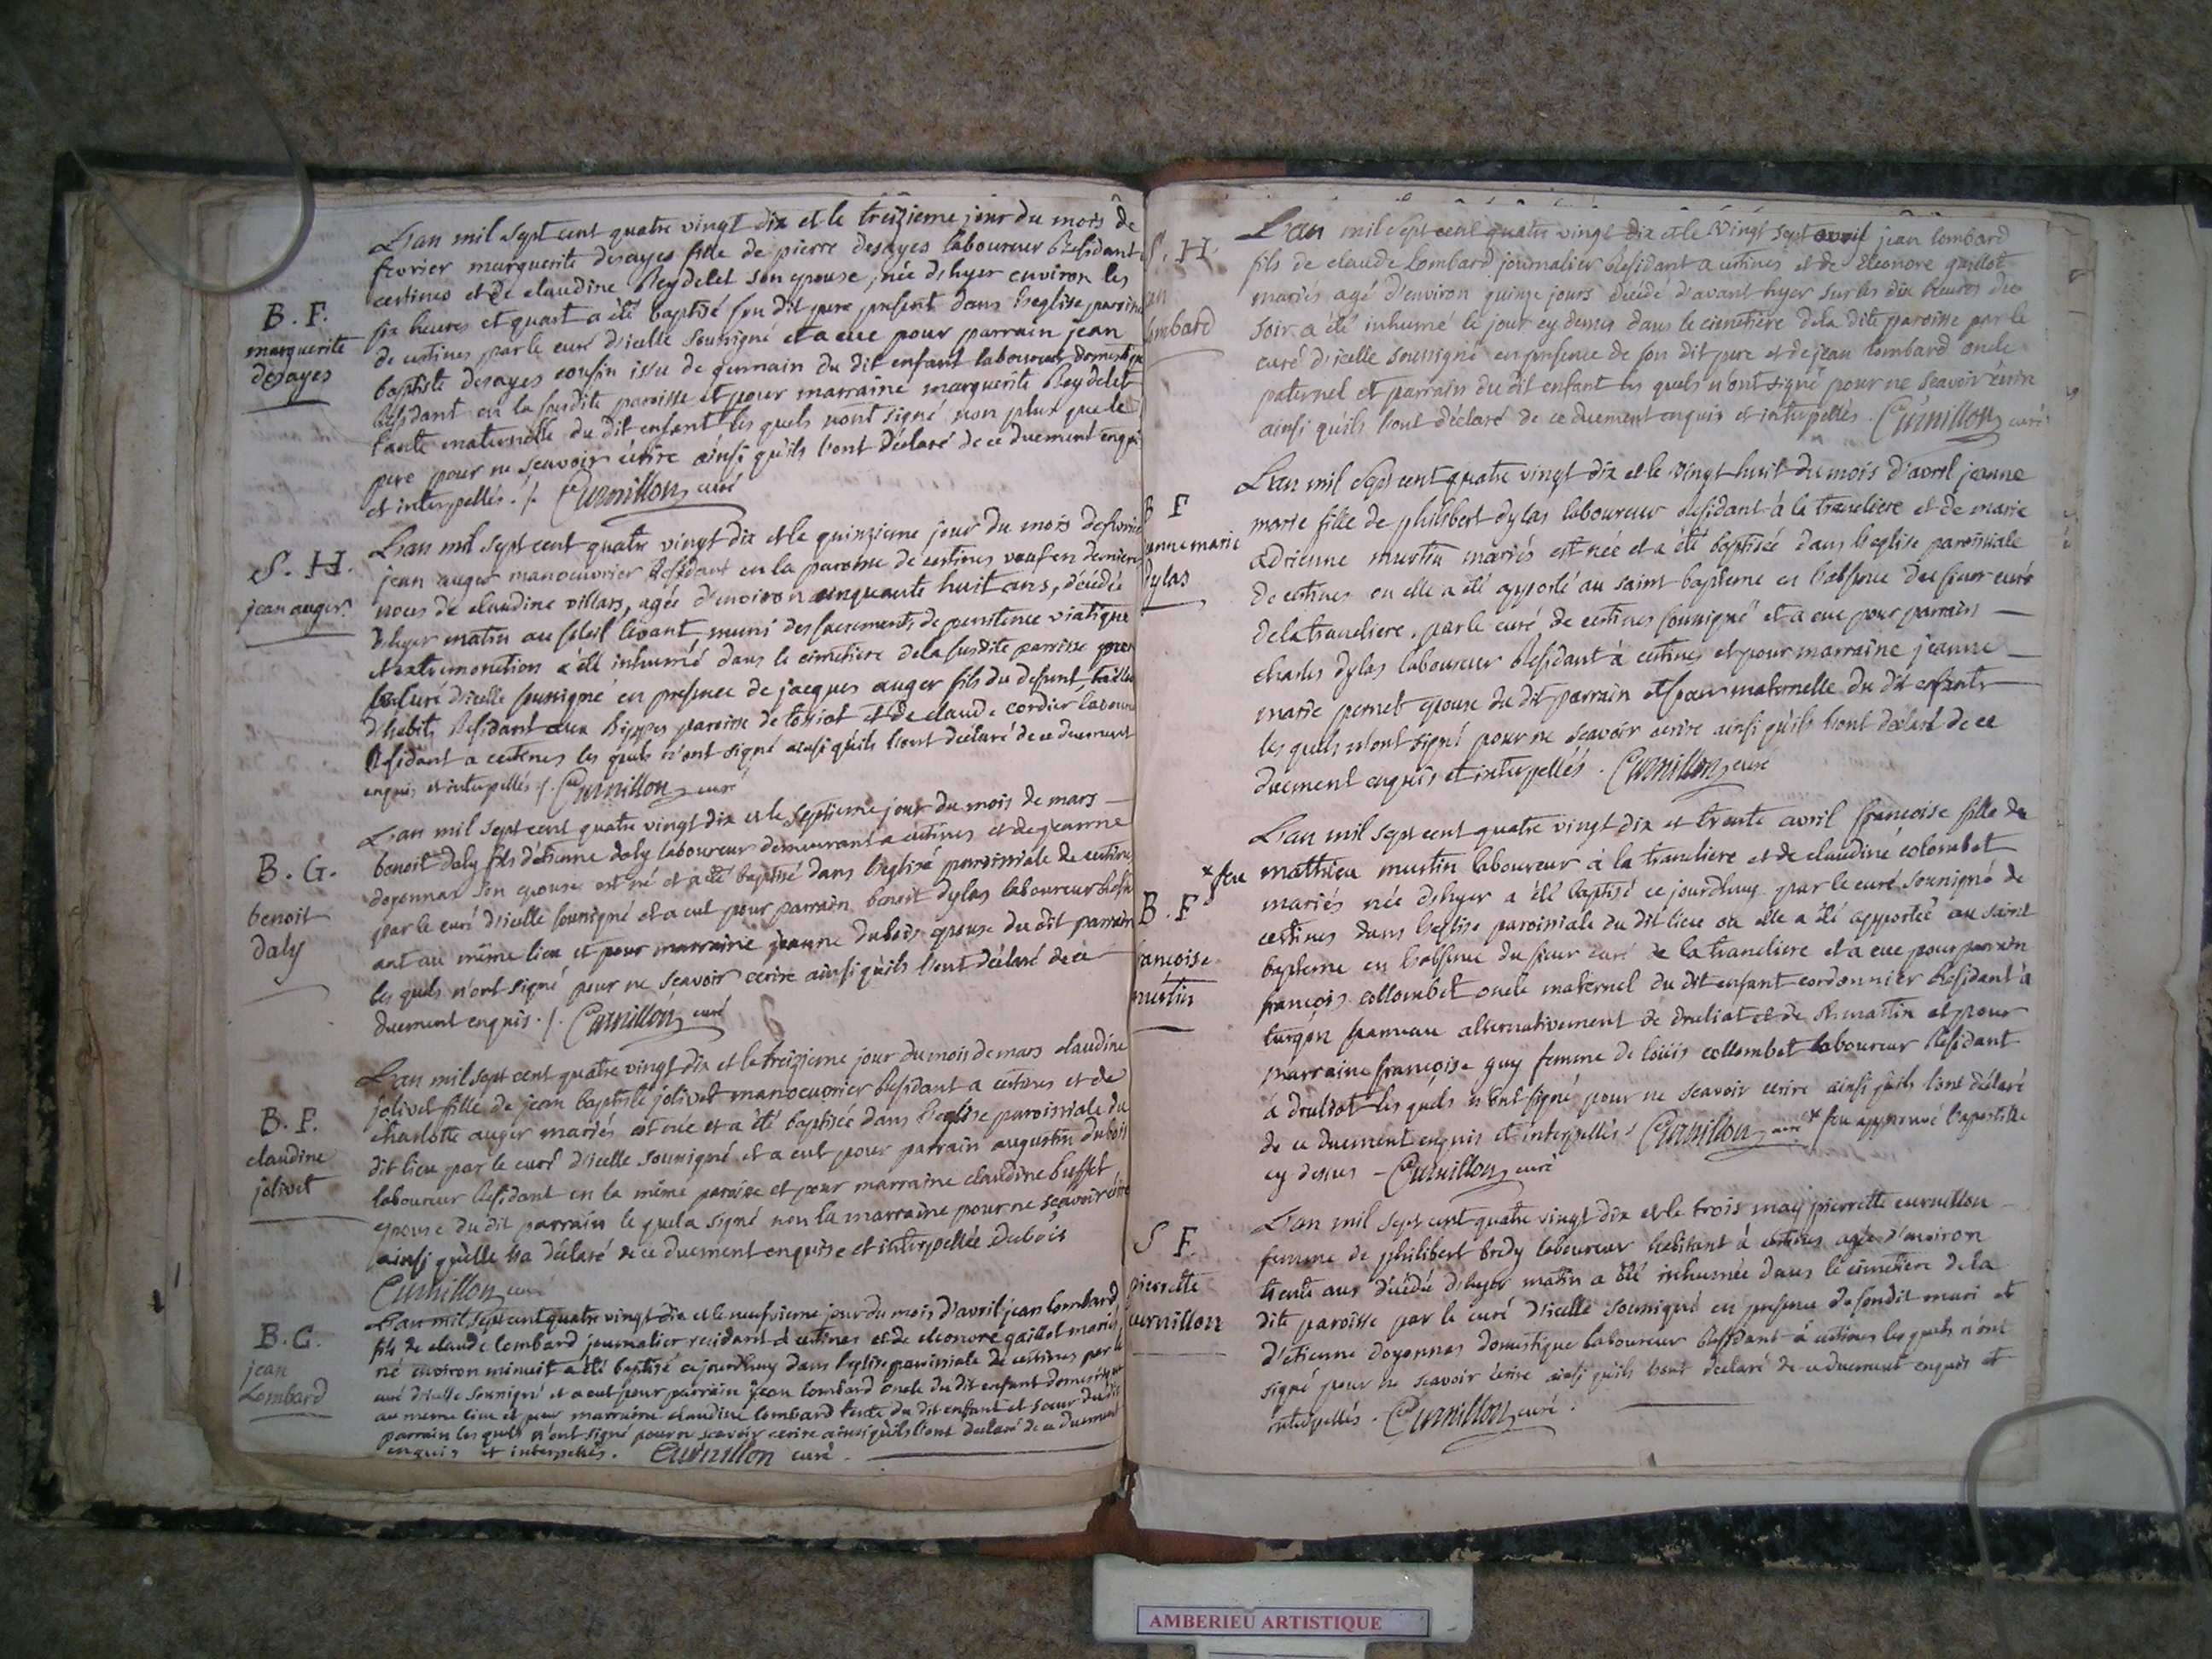 L'an mil sept cent quatre vingt dix et le treizieme jour du mois de
fevrier marguerite desayes fille de pierre desayes laboureur Residant
certines et de claudine Reydelet son epouse, née d'hyer environ les
six heures et quart a été baptisé son dit pere present dans l'eglise paroiss
B. F.
marguerite
desayes
de certines par le curé d'icelle soussigné et a eue pour parrain jean
baptiste desayes cousin issu de germain du dit enfant laboureur domestique
Residant en la susdite paroisse et pour marraine marguerite Reydelet
tante maternelle du dit enfant les quels n'ont signé non plus que le
pere pour ne scavoir écrire ainsi qu'ils l'ont déclaré de ce duement enqui
et interpellés ./. Curnillon curé
S. H.
jean auger
L'an mil sept cent quatre vingt dix et le quinzieme jour du mois de fevrier
jean auger manoeuvrier Residant en la paroisse de certines veuf en derniere
noces de claudine villars, agée d'environ cinquante huit ans, décédé
d'hyer matin au soleil levant, muni des sacrements de penitence viatique
et extremonction a été inhumé dans le cimetiere de la susdite paroisse par
le curé d'icelle soussigné en presence de jacques auger fils du defunt tailleu
d'habits Residant aux Rippes paroisse de tossiat et de claude cordier laboure
Residant a certines les quels n'ont signé ainsi qu'ils l'ont déclaré de ce duement
enquis et interpellés ./. Curnillon curé
B. G.
benoit
daly
L'an mil sept cent quatre vingt dix et le septieme jour du mois de mars
benoit daly fils d'etienne daly laboureur demeurant a certines et de jeanne
doyonnax son epouse est né et a été baptisé dans l'eglise paroissiale de certines
par le curé d'icelle soussigné et a eut pour parrain benoit dylas laboureur Resid
ant au même lieu et pour marraine jeanne dubois epouse du dit parrain
les quels n'ont signé pour ne sçavoir ecrire ainsi qu'ils l'ont déclaré de ce
duement enquis ./. Curnillon curé
B. F.
claudine
jolivet
L'an mil sept cent quatre vingt dix et le treizieme jour du mois de mars claudine
jolivet fille de jean baptiste jolivet manoeuvrier Residant a certines et de
charlotte auger mariés est née et a été baptisée dans l'eglise paroissiale du
dit lieu par le curé d'icelle soussigné et a eut pour parrain augustin dubois
laboureur Residant en la même paroisse et pour marraine claudine buffet
epouse du dit parrain le quel a signé non la marraine pour ne sçavoir écrire
ainsi qu'elle l'a déclaré de ce duement enquise et interpellée Dubois
Curnillon curé
B. G.
jean
Lombard
L'an mil sept cent quatre vingt dix et le neufvieme jour du mois d'avril jean lombard
fils de claude lombard journalier residant à certines et de eleonore gaillot mariés
né environ minuit a été baptisé ce jourdhuy dans l'eglise paroissiale de certines par le
curé d'icelle soussigné et a eut pour parrain jean lombard oncle du dit enfant domestique
au meme lieu et pour marraine claudine lombard tante du dit enfant et soeur du dit
parrain les quels n'ont signé pour ne scavoir ecrire ainsi qu'ils l'ont declaré de ce duement
enquis et interpellés. Curnillon curé.
S. H
an
ombard
L'an mil sept cent quatre vingt dix et le vingt sept avril jean lombard
fils de claude Lombard journalier Residant a certines et de eleonore gaillot
mariés agé d'environ quinze jours décédé d'avant hyer sur les dix heures du
soir a été inhumé le jour cy dessus dans le cimetière de la dite paroisse par le
curé d'icelle soussigné en presence de son dit pere et de jean lombard oncle
paternel et parrain du dit enfant les quels n'ont signé pour ne scavoir écrire
ainsi qu'ils l'ont déclaré de ce duement enquis et interpellés. Curnillon curé
B F
anne marie
dylas
L'an mil sept cent quatre vingt dix et le vingt huit du mois d'avril jeanne
marie fille de philibert dylas laboureur Residant à la tranclière et de marie
adrienne murtin mariés est née et a été baptisée dans l'eglise paroissiale
de certines ou elle a été apporté au saint bapteme en l'absence du sieur curé
de la tranclière, par le curé de certines soussigné et a eue pour parrain
charles dylas laboureur Residant à certines et pour marraine jeanne
marie pernet epouse du dit parrain et soeur maternelle du dit enfant
les quels n'ont signé pour ne scavoir ecrire ainsi qu'ils l'ont declaré de ce
duement enquis et interpellés. Curnillon curé
B. F
francoise
murtin
L'an mil sept cent quatre vingt dix et trente avril françoise fille de
*feu mathieu murtin laboureur à la tranclière et de claudine colombet
mariés née d'hyer a été baptisé ce jourdhuy par le curé soussigné de
certines dans l'eglise paroissiale du dit lieu ou elle a été apportée au saint
bapteme en l'absence du sieur curé de la tranclière et a eue pour parrain
françois collombet oncle maternel du dit enfant cordonnier Residant à
turgon hameau alternativement de druliat et de st martin et pour
marraine françoise guy femme de loüis collombet laboureur Residant
à druliat les quels n'ont signé pour ne scavoir ecrire ainsi qu'ils l'ont déclaré
de ce duement enquis et interpellés ./. Curnillon curé *feu approuvé l'apostille
cy dessus - Curnillon curé
S F.
pierrette
curnillon
L'an mil sept cent quatre vingt dix et le trois may pierrette curnillon
femme de philibert brédy laboureur habitant à certines agée d'environ
trente ans décédée d'hyer matin a été inhumée dans le cimetière de la
dite paroisse par le curé d'icelle soussigné en presence de son dit mari et
d'etienne doyonnas domestique laboureur Residant à certines les quels n'ont
signé pour ne scavoir écrire ainsi qu'ils l'ont declaré de ce duement enquis et
interpellés. Curnillon curé.
AMBERIEU ARTISTIQUE